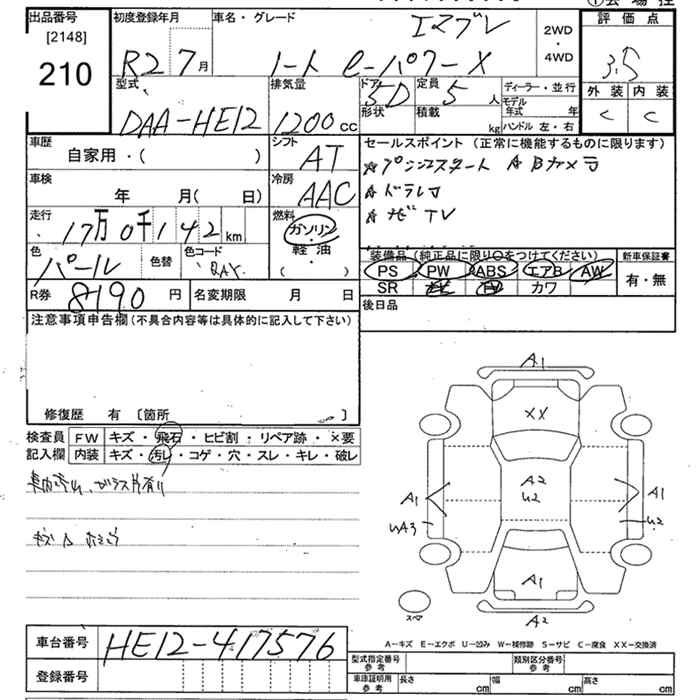 出品番号
[2148]
210
初度登録年月
R2 7月
車名・グレード
エマブレ
ノート e-パワー X
2WD
・
4WD
評価点
3.5
外装 内装
C C
型式
DAA-HE12
排気量
1200cc
ドア
5D
形状
定員
5人
積載
kg
ディーラー・並行
モデル
年式 年
ハンドル 左・右
車歴
自家用・( )
シフト
AT
車検
年 月( 日)
冷房
AAC
走行
17万0千142km
燃料
ガソリン・
軽油・
( )
色
パール
色替
色コード
QAX
R券
8190円
名変期限 月 日
セールスポイント (正常に機能するものに限ります)
☆プッシュスタート ☆Bカメラ
☆ドラレコ
☆ナビTV
装備品(純正品に限り○をつけてください)
PS PW ABS エアB AW
SR ナビ TV カワ
新車保証書
有・無
後日品
注意事項申告欄(不具合内容等は具体的に記入して下さい)
修復歴 有 [箇所 ]
検査員
記入欄
FW キズ・飛石・ヒビ割・リペア跡・×要
内装 キズ・汚レ・コゲ・穴・スレ・キレ・破レ
車内汚れ、ガラス片有り
A1
XX
A2
U2
A1
A1
UA3
U2
A1
A2
スペア
A－キズ E－エクボ U－凹み W－補修跡 S－サビ C－腐食 XX－交換済
車台番号
HE12-417576
登録番号
型式指定番号
参考
類別区分番号
参考
車庫証明用
参考
長さ cm 幅 cm 高さ cm